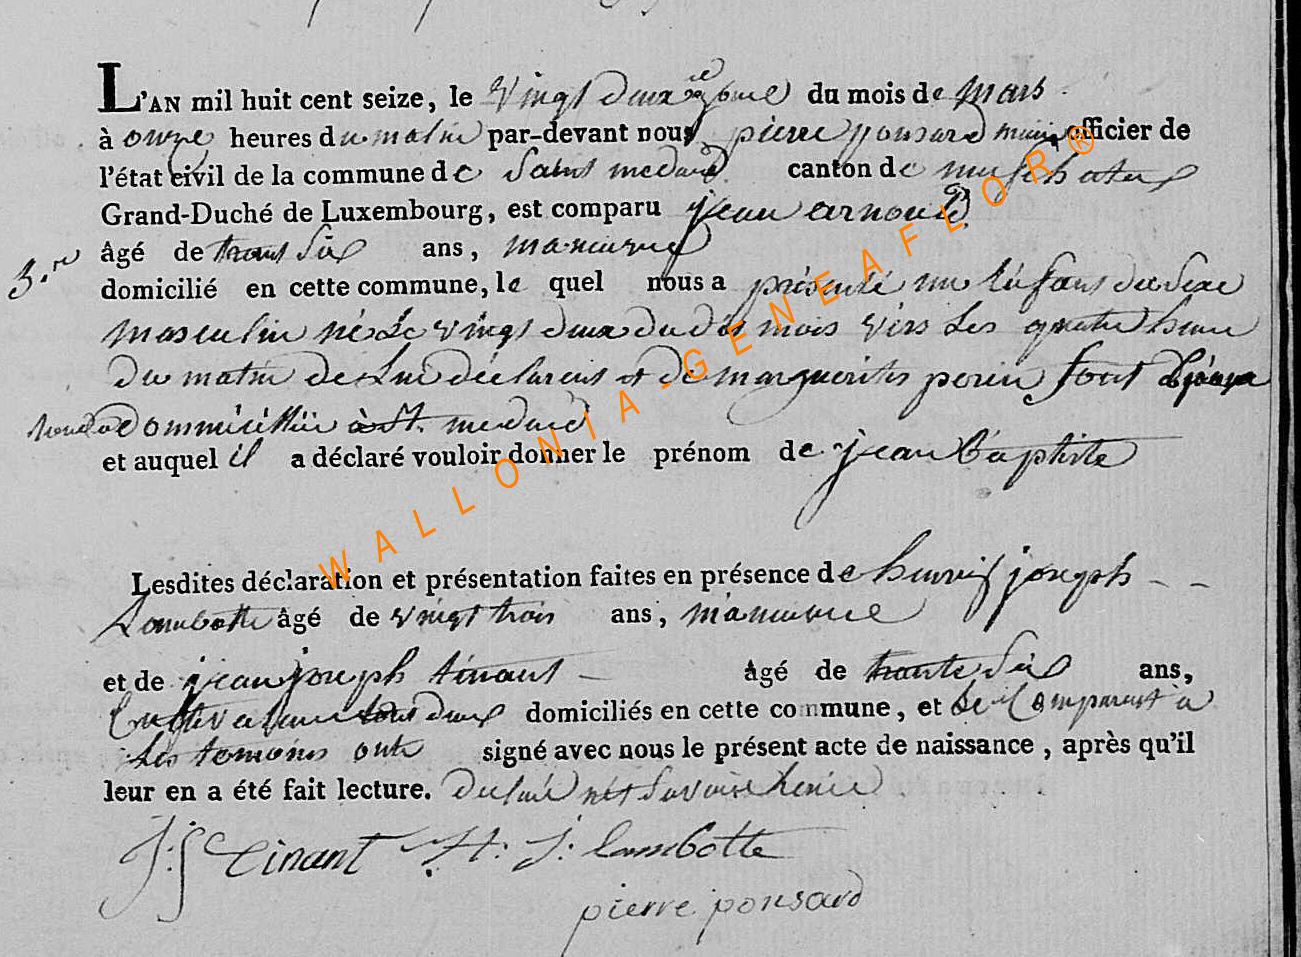 L'AN mil huit cent seize, le vingt deuxième jour du mois de mars
à onze heures du matin par-devant nous pierre ponsard maire officier de
l'état civil de la commune de Saint medard canton de neufchateau
Grand-Duché de Luxembourg, est comparu jean arnould
âgé de trante Six ans, manuvre
3.re
domicilié en cette commune, le quel nous a présenté un Enfant du Sexe
masculin né Le vingt deux du dit mois vers Les quatre heure
du matin de Lui déclarent et de marguerite perin Sont Epouse
tous deux Dommicilliée à St. medard
et auquel il a déclaré vouloir donner le prénom de jean Baptiste
Lesdites déclaration et présentation faites en présence de henrij joseph
Lambotte âgé de vingt trois ans, manuvre
et de jean joseph tinant âgé de trante Six ans,
Cultivateur tous deux domiciliés en cette commune, et Le Comparant a
Les temoins ont signé avec nous le présent acte de naissance, après qu'il
leur en a été fait lecture. Declaré
J: J Tinant H: J: lambotte
pierre ponsard
WALLONIA-GENEAFLOR®